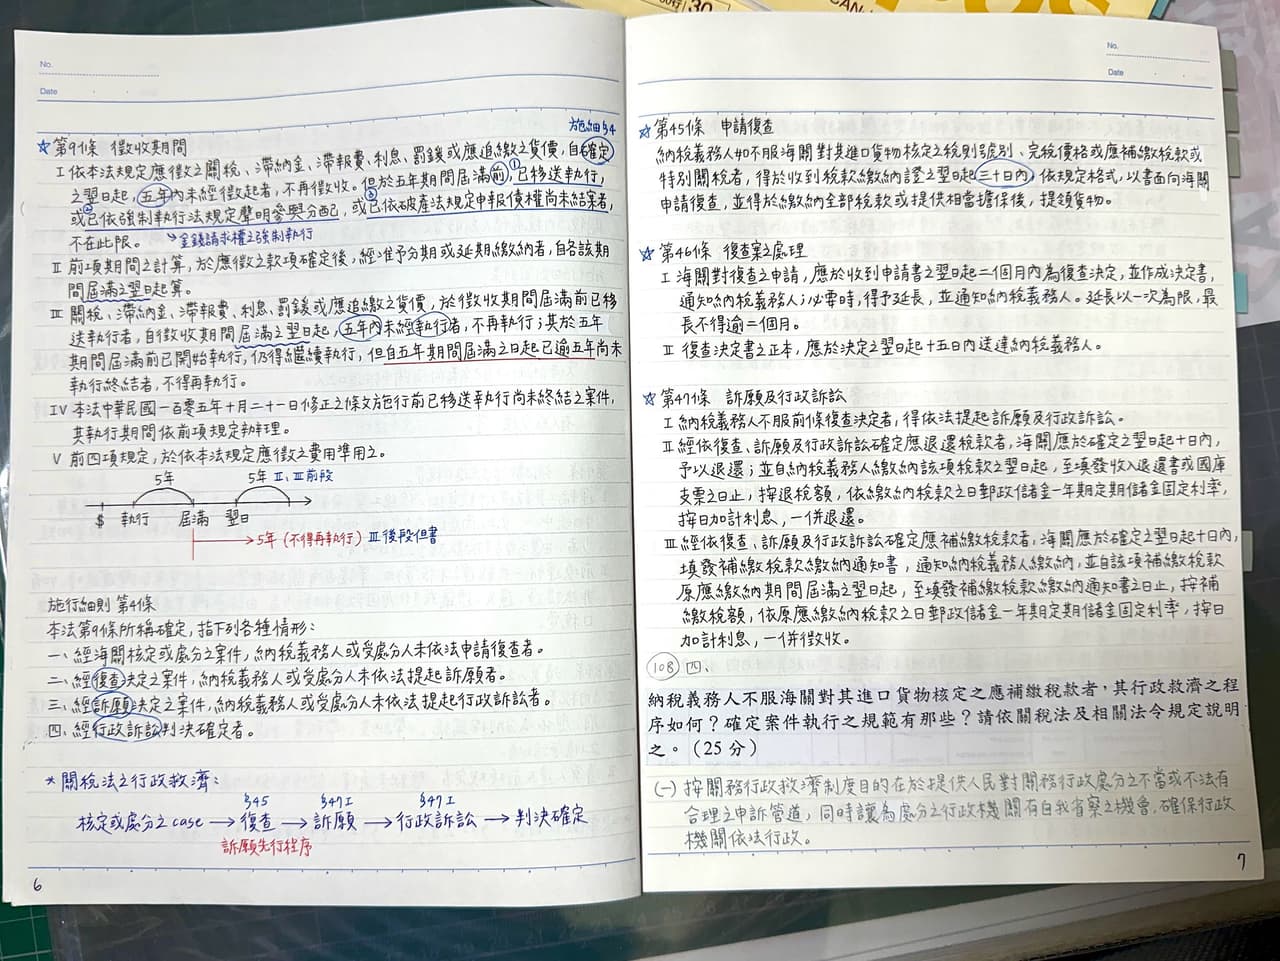 No.
Date
施細§4
☆第9條 徵收期間
I 依本法規定應徵之關稅、滯納金、滯報費、利息、罰鍰或應追繳之貨價,自確定
之翌日起,五年內未經徵起者,不再徵收。但於五年期間屆滿前,①已移送執行,
或②已依強制執行法規定聲明參與分配,或③已依破產法規定申報債權尚未結案者,
不在此限。 ↳金錢請求權之強制執行
II 前項期間之計算,於應徵之款項確定後,經准予分期或延期繳納者,自各該期
間屆滿之翌日起算。
III 關稅、滯納金、滯報費、利息、罰鍰或應追繳之貨價,於徵收期間屆滿前已移
送執行者,自徵收期間屆滿之翌日起,五年內未經執行者,不再執行;其於五年
期間屆滿前已開始執行,仍得繼續執行,但自五年期間屆滿之日起已逾五年尚未
執行終結者,不得再執行。
IV 本法中華民國一百零五年十月二十一日修正之條文施行前已移送執行尚未終結之案件,
其執行期間依前項規定辦理。
V 前四項規定,於依本法規定應徵之費用準用之。
5年 5年 II、III前段
$ 執行 屆滿 翌日
5年(不得再執行) III後段但書
施行細則 第4條
本法第9條所稱確定,指下列各種情形:
一、經海關核定或處分之案件,納稅義務人或受處分人未依法申請復查者。
二、經復查決定之案件,納稅義務人或受處分人未依法提起訴願者。
三、經訴願決定之案件,納稅義務人或受處分人未依法提起行政訴訟者。
四、經行政訴訟判決確定者。
*關稅法之行政救濟:
§45 §47I §47I
核定或處分之case→復查→訴願→行政訴訟→判決確定
訴願先行程序
6
No.
Date
☆第45條 申請復查
納稅義務人如不服海關對其進口貨物核定之稅則號別、完稅價格或應補繳稅款或
特別關稅者,得於收到稅款繳納證之翌日起三十日內,依規定格式,以書面向海關
申請復查,並得於繳納全部稅款或提供相當擔保後,提領貨物。
☆第46條 復查案之處理
I 海關對復查之申請,應於收到申請書之翌日起二個月內為復查決定,並作成決定書,
通知納稅義務人;必要時,得予延長,並通知納稅義務人。延長以一次為限,最
長不得逾二個月。
II 復查決定書之正本,應於決定之翌日起十五日內送達納稅義務人。
☆第47條 訴願及行政訴訟
I 納稅義務人不服前條復查決定者,得依法提起訴願及行政訴訟。
II 經依復查、訴願及行政訴訟確定應退還稅款者,海關應於確定之翌日起十日內,
予以退還;並自納稅義務人繳納該項稅款之翌日起,至填發收入退還書或國庫
支票之日止,按退稅額,依繳納稅款之日郵政儲金一年期定期儲金固定利率,
按日加計利息,一併退還。
III 經依復查、訴願及行政訴訟確定應補繳稅款者,海關應於確定之翌日起十日內,
填發補繳稅款繳納通知書,通知納稅義務人繳納,並自該項補繳稅款
原應繳納期間屆滿之翌日起,至填發補繳稅款繳納通知書之日止,按補
繳稅額,依原應繳納稅款之日郵政儲金一年期定期儲金固定利率,按日
加計利息,一併徵收。
108 四、
納稅義務人不服海關對其進口貨物核定之應補繳稅款者,其行政救濟之程
序如何?確定案件執行之規範有那些?請依關稅法及相關法令規定說明
之。(25分)
(一) 按關務行政救濟制度目的在於提供人民對關務行政處分之不當或不法有
合理之申訴管道,同時讓為處分之行政機關有自我省察之機會,確保行政
機關依法行政。
7